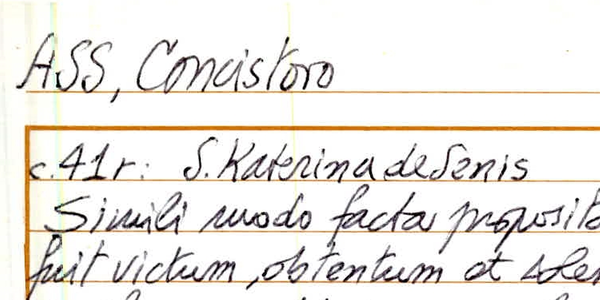 ASS, Concistoro
c. 41r: S. Katerina de Senis
Simili modo facta proposit
fuit victum, obtentum et solen